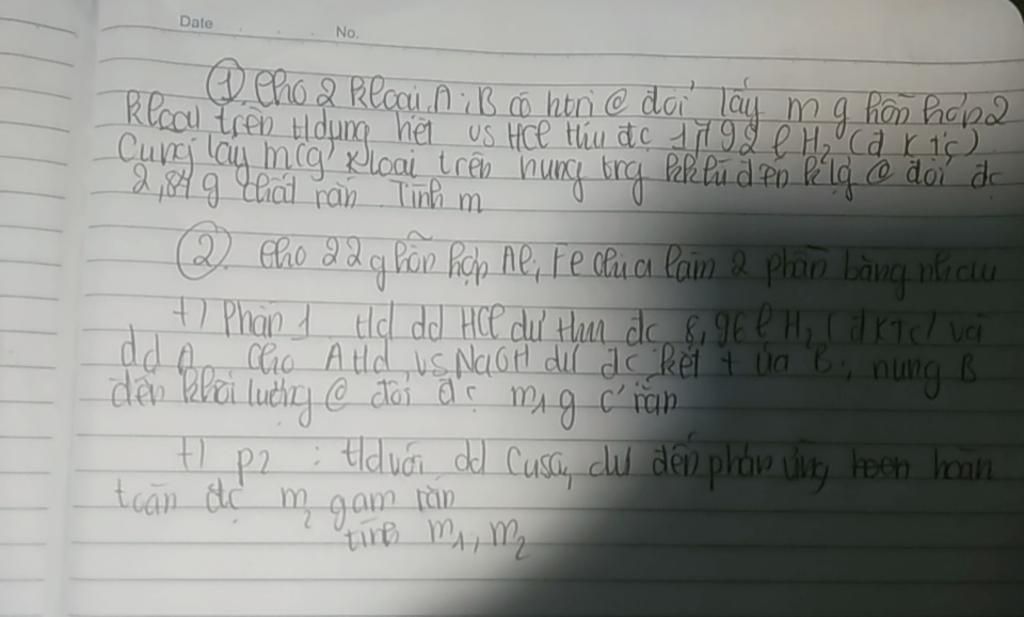 Date
No.
① Cho 2 Kloai A, B có htri @ đổi lấy m g hỗn hợp 2
Kloai trên tdụng hết vs HCl thu đc 1,792 l H₂ (đktc)
Cũng lấy m(g) kloai trên nung trg kk đến klg @ đổi đc
2,84 g chất rắn Tính m
② Cho 22g hỗn hợp Al, Fe chia làm 2 phần bằng nhau
+) Phần 1 td dd HCl dư thu đc 8,96 l H₂ (đktc) và
dd A cho A td vs NaOH dư đc kết tủa B, nung B
đến khối lượng @ đổi đc m₁ g c'rắn
+) P2 : td với dd CuSO₄ dư đến phản ứng hoàn
toàn đc m₂ gam rắn
tính m₁, m₂